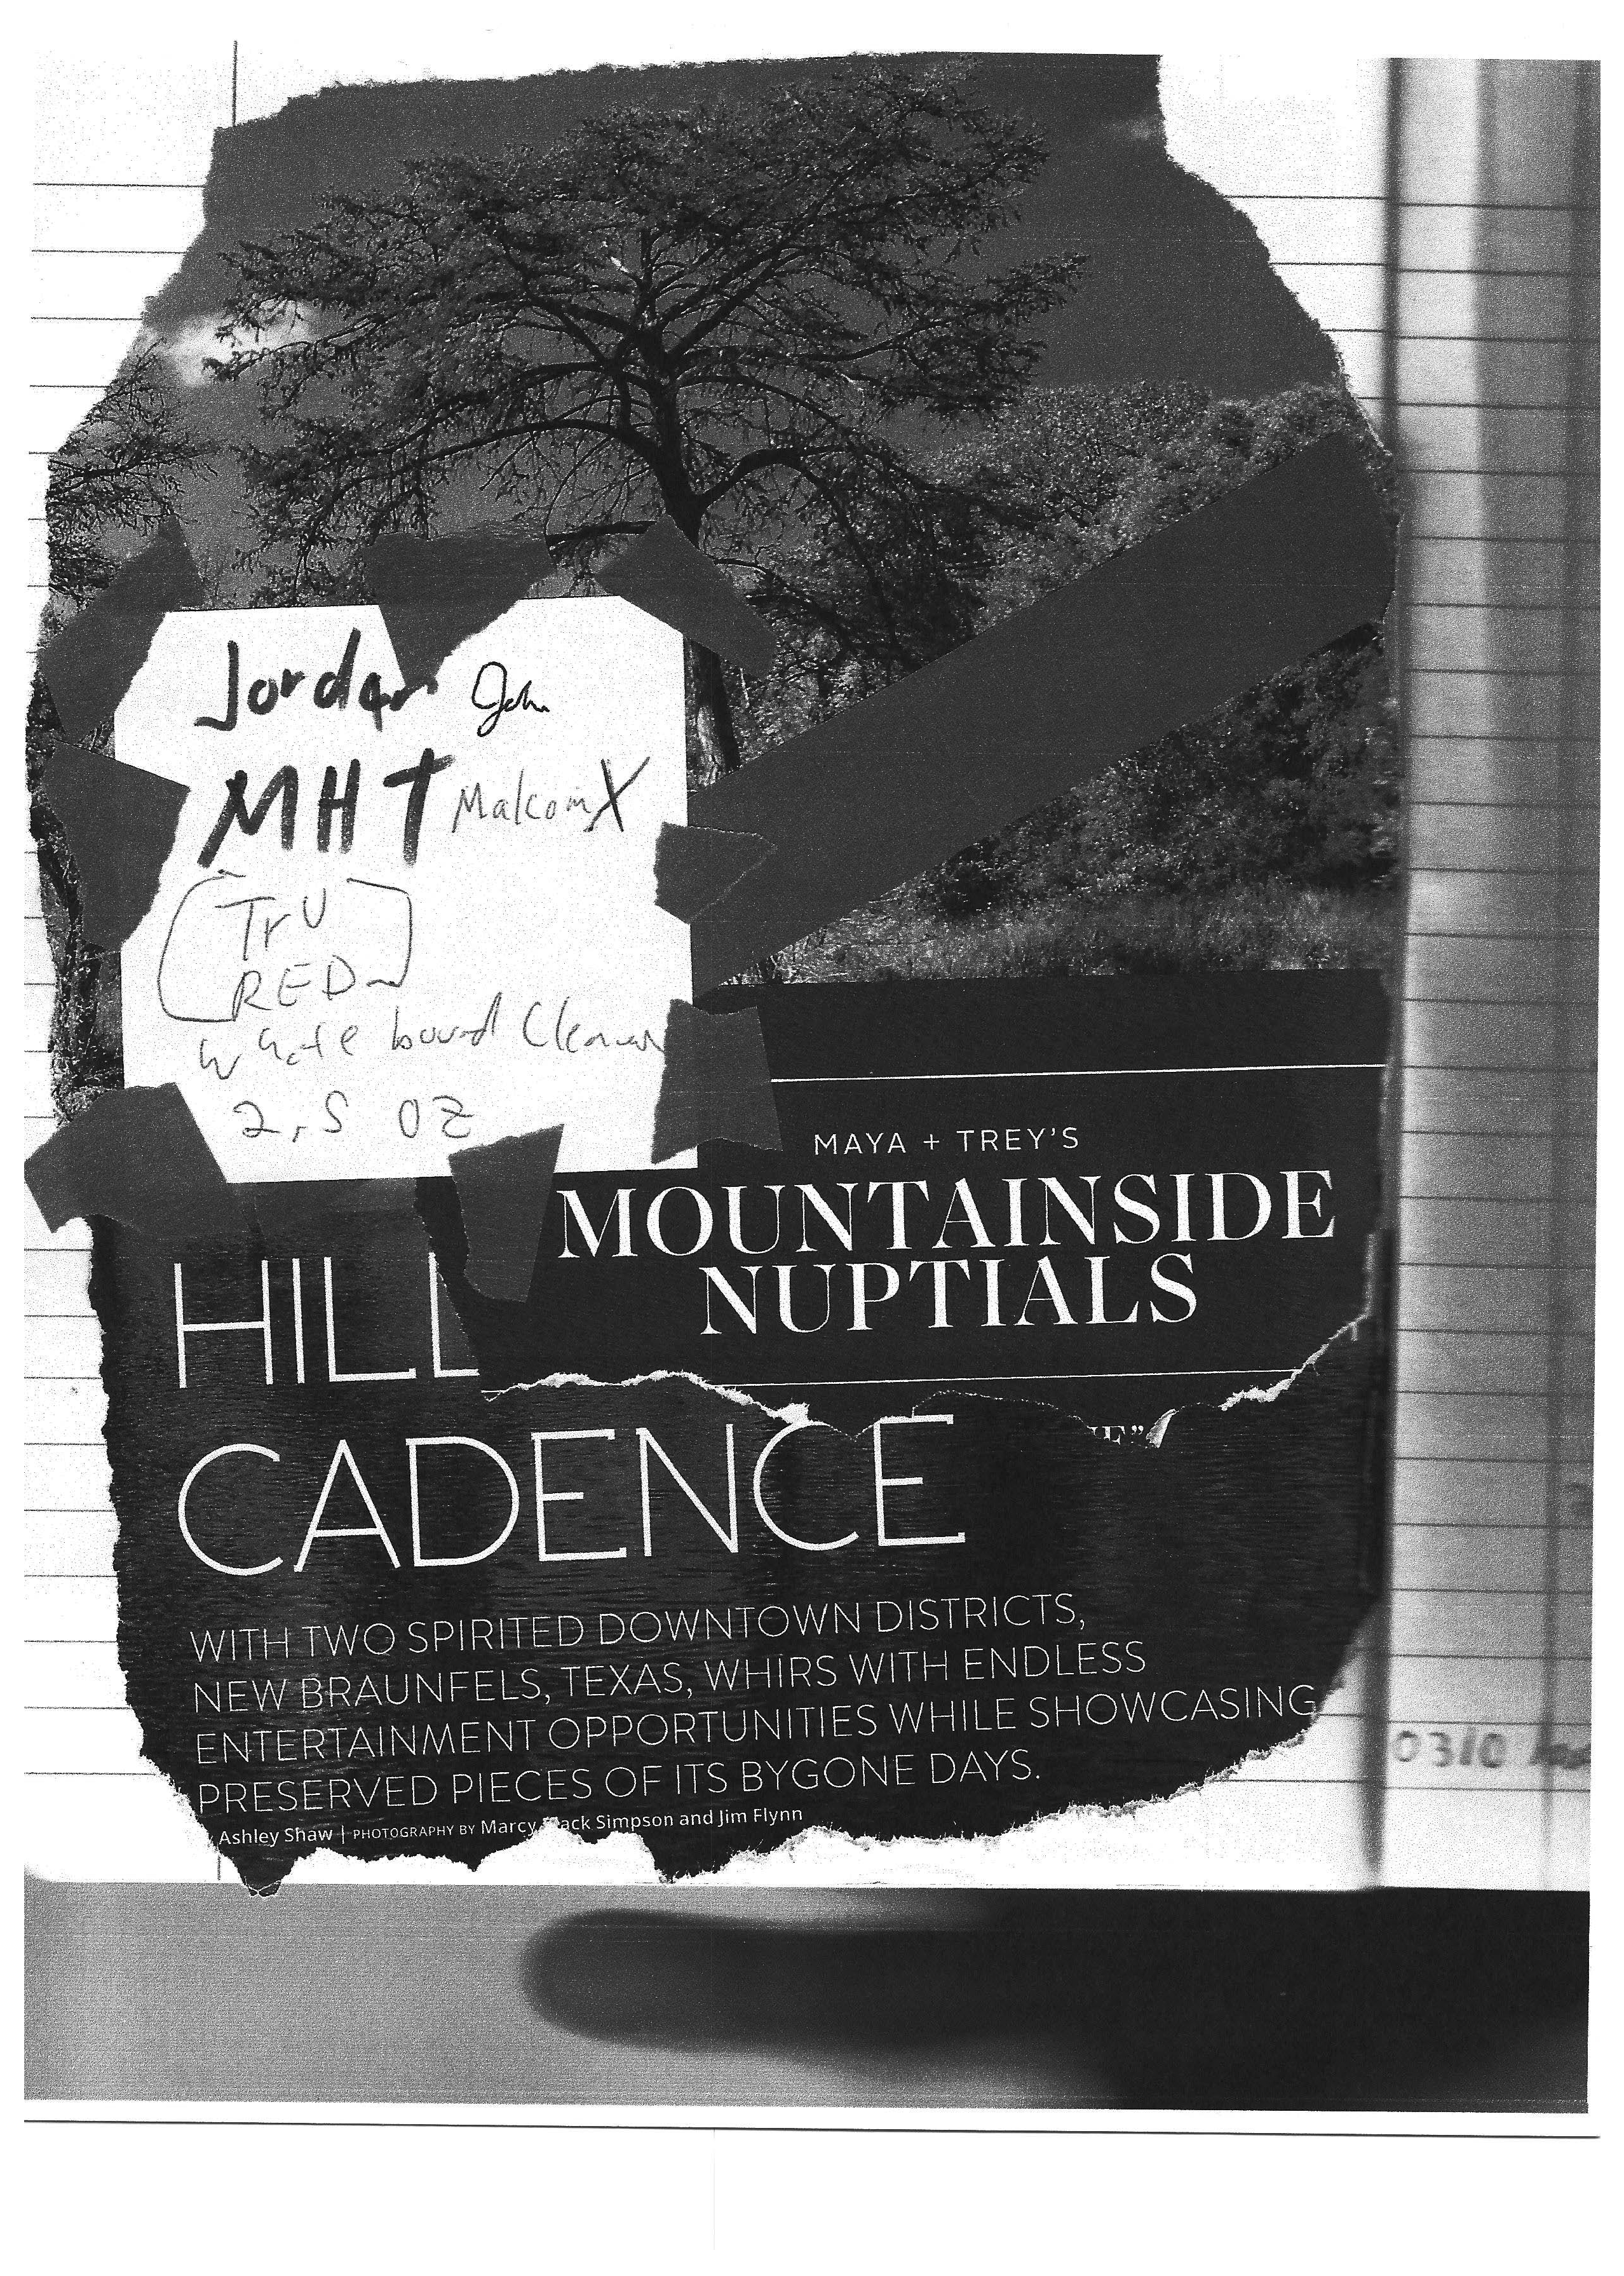 Jordan John
MHT Malcom X
Tru
RED
white bourd Cleaner
2.5 OZ
MAYA + TREY'S
MOUNTAINSIDE
NUPTIALS
HILL
CADENCE
WITH TWO SPIRITED DOWNTOWN DISTRICTS,
NEW BRAUNFELS, TEXAS, WHIRS WITH ENDLESS
ENTERTAINMENT OPPORTUNITIES WHILE SHOWCASING
PRESERVED PIECES OF ITS BYGONE DAYS.
Ashley Shaw | PHOTOGRAPHY BY Marcy Simpson and Jim Flynn
0310